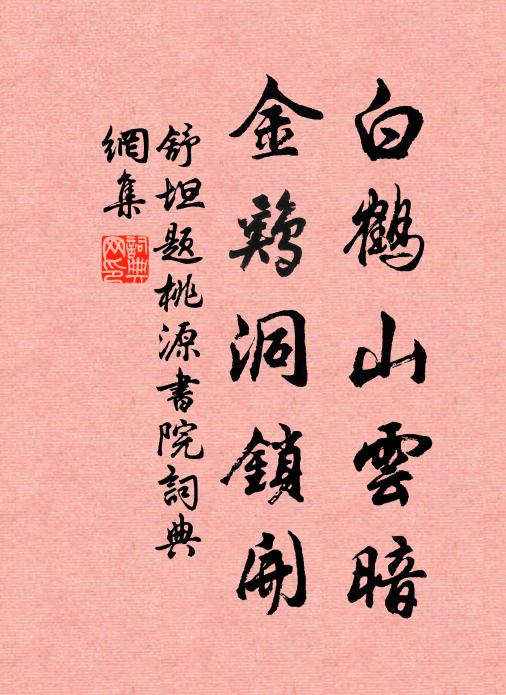 白鶴山雲暗
金鷄洞鎖開
舒坦题桃源書院詞典
網集
詞典
网印